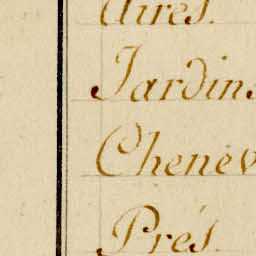 Aires.
Jardins
Chenev
Prés.